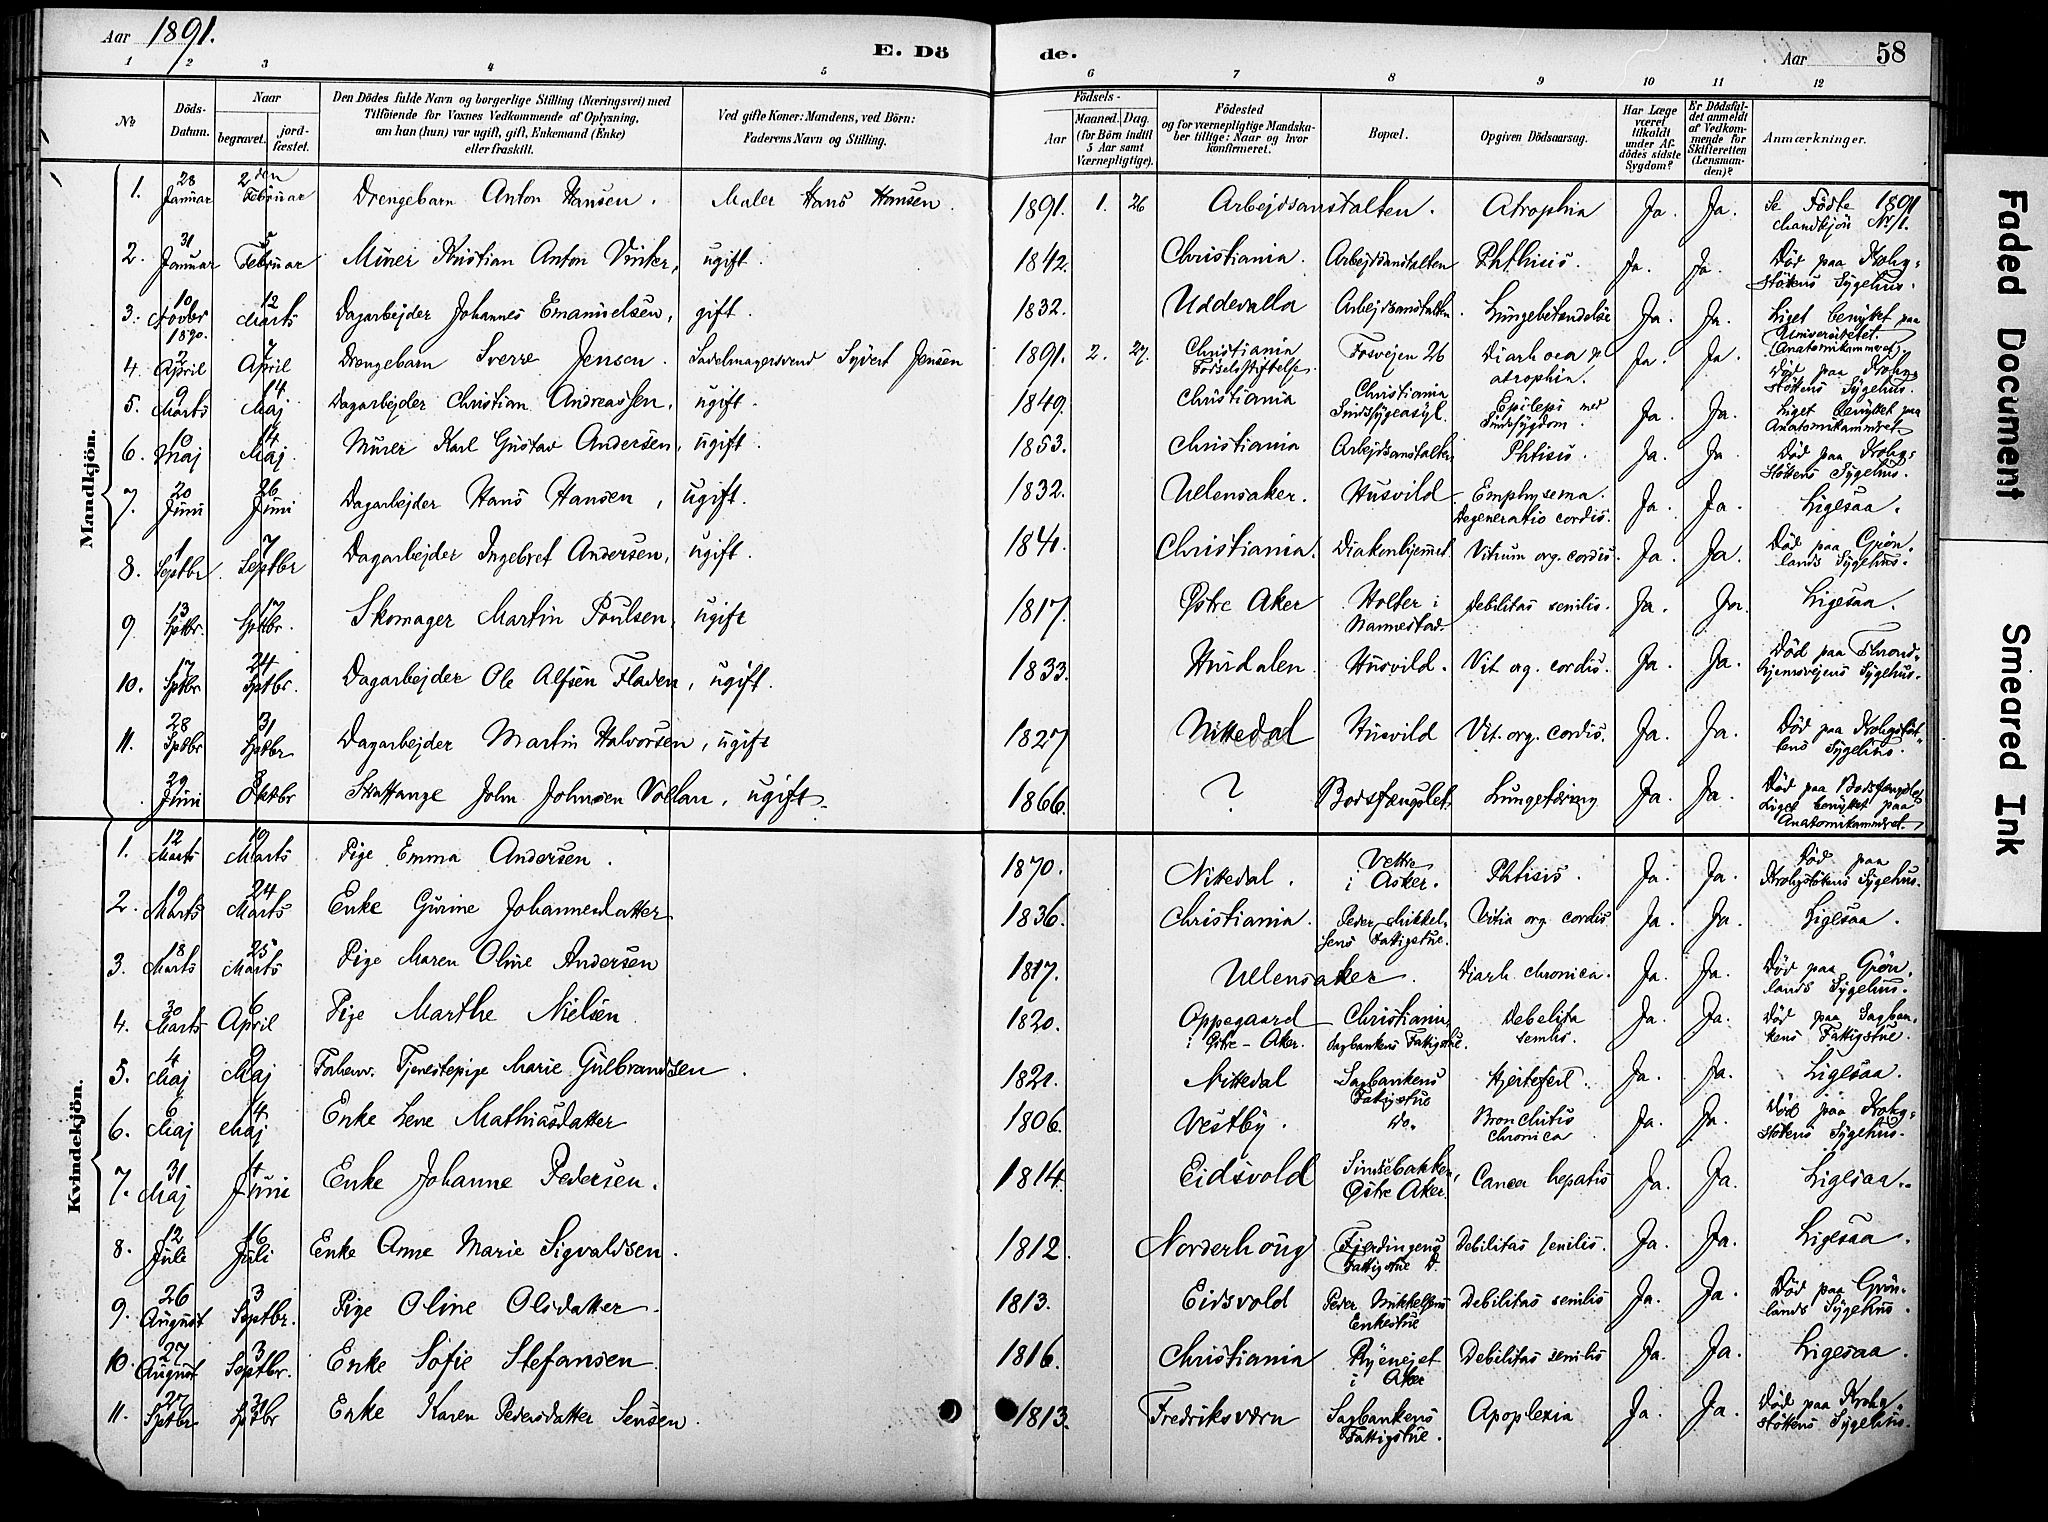 Aar 1891.
E. Dö
de.
Aar
58
1 2 3 4 5 6 7 8 9 10 11 12
No. Döds-Datum. Naar begravet. jordfæstet. Den Dödes fulde Navn og borgerlige Stilling (Næringsvei) med Tilföiende for Voxnes Vedkommende af Oplysning, om han (hun) var ugift, gift, Enkemand (Enke) eller fraskilt. Ved gifte Koner: Mandens, ved Börn: Faderens Navn og Stilling. Födsels- Aar Maaned. Dag. (for Börn indtil 5 Aar samt Værnepligtige). Födested og for værnepligtige Mandskaber tillige: Naar og hvor konfirmeret. Bopæl. Opgiven Dödsaarsag. Har Læge været tilkaldt under Afdödes sidste Sygdom? Er Dödsfaldet anmeldt af Vedkommende for Skifteretten (Lensmanden)? Anmærkninger.
Mandkjön.
1. 28 Januar 2den Februar Drengebarn Anton Hansen. Maler Hans Hansen. 1891. 1. 26 Arbejdsanstalten. Atrophia Ja. Ja. Se Födte 1891 Mandkjön No. 1.
2. 31 Januar 5 Februar Kristian Anton Vinter, ugift. 1842. Christiania. Arbejdsanstalten Phthisis. Ja. Ja. Död paa Krohgstöttens Sygehus.
3. 10 Novbr 1890. 12 Marts Dagarbejder Johannes Emanuelsen, gift. 1832. Uddevalla Arbejdsanstalten. Lungebetændelse Ja. Ja. Liget benyttet paa Universitetet Anatomikammret.
4. 2 April 7 April Drengebarn Sverre Jensen. Sadelmagersvend Syvert Jensen 1891. 2. 27. Christiania Fødselsstiftelse. Fosvejen 26 Diarhoea & atrophia. Ja. Ja. Död paa Krohgstöttens Sygehus.
5. 9 Marts 14 Maj Dagarbejder Christian Andreassen, ugift. 1849. Christiania Christiania Sindssygeasyl. Epilepi med Sindssygdom. Ja. Ja. Liget benyttet paa Anatomikammret
6. 10 Maj 14 Maj. Murer Karl Gustav Andersen, ugift. 1853. Christiania Arbejdsanstalten Phtisis. Ja. Ja. Död paa Krohgstöttens Sygehus.
7. 20 Juni 26 Juni Dagarbejder Hans Hansen, ugift. 1832. Ullensaker. Husvild Emphysema. Degeneratio cordis. Ja. Ja. Ligesaa.
8. 1 Septbr. 7 Septbr Dagarbejder Ingebret Andersen, ugift. 1841. Christiania. Diakonhjemmet Vitium org. cordis. Ja. Ja. Död paa Grönlands Sygehus.
9 13 Sptbr. 17 Sptbr. Skomager Martin Poulsen, ugift 1817. Østre Aker Holter i Nannestad. Debilitas senilis. Ja. Ja. Ligesaa.
10. 17 Sptbr 24 Sptbr. Dagarbejder Ole Alfsen Fladen, ugift. 1833. Hurdalen Husvild. Vit. org. cordis. Ja. Ja. Död paa Throndhjemsvejens Sygehus.
11. 28 Sptbr 31 Sptbr Dagarbejder Martin Halvorsen, ugift 1827 Nittedal Husvild Vit. org. cordis. Ja. Ja. Död paa Krohgstöttens Sygehus.
29 Juni 8 Oktbr Straffange John Johnsen Vollan, ugift. 1866. ? Bodsfængslet. Lungetæring Ja. Ja. Död paa Bodsfængslet Liget benyttet paa Anatomikammret.
Kvindekjön.
1. 12 Marts 19 Marts Pige Emma Andersen. 1870. Nittedal. Vettre i Asker. Phtisis. Ja. Ja. Död paa Krohgstöttens Sygehus.
2. 19 Marts 24 Marts Enke Gurine Johannesdatter 1836. Christiania. Peder Mikkelsens Fattigstue. Vitia org. cordis Ja. Ja. Ligesaa.
3. 18 Marts 25 Marts Pige Maren Oline Andersen 1817. Ullensaker. Diarh. chronica. Ja. Ja. Död paa Grønlands Sygehus.
4. 30 Marts 6 April Pige Marthe Nielsen 1820. Oppegaard i Østre-Aker. Christiania, Sagbankens Fattigstue. Debelita senilis. Ja. Ja. Död paa Sagbankens Fattigstue.
5. 4 Maj 9 Maj Forhenv. Tjenestepige Marie Gulbrandsen. 1821. Nittedal Sagbankens Fattigstue Hjertefeil. Ja. Ja. Ligesaa.
6. 6 Maj 14 Maj Enke Lene Mathiasdatter 1806. Vestby. Do. Bronchitis chronica Ja. Ja. Död paa Krohgstöttens Sygehus.
7. 31 Maj 4 Juni Enke Johanne Pedersen. 1814. Eidsvold Sinsebakken, Østre Aker. Cancer hepatis Ja. Ja. Ligesaa.
8. 12 Juli 16 Juli Enke Anne Marie Sigvaldsen. 1812. Norderhoug Fjerdingens Fattigstue Debilitas senilis. Ja. Ja. Ligesaa.
9. 26 August 3 Septbr. Pige Oline Olsdatter. 1813. Eidsvold Peder Mikkelsens Enkestue Debilitas senilis Ja. Ja. Död paa Grönlands Sygehus.
10. 27 August 3 Septbr. Enke Sofie Stefansen. 1816. Christiania Ryenejet i Aker Debilitas senilis Ja. Ja. Ligesaa.
11. 27 Sptbr 31 Sptbr Enke Karen Pedersdatter Jensen. 1813. Fredriksværn Sagbankens Fattigstue. Apoplexia Ja. Ja. Död paa Krohgstöttens Sygehus.
Faded Document
Smeared Ink